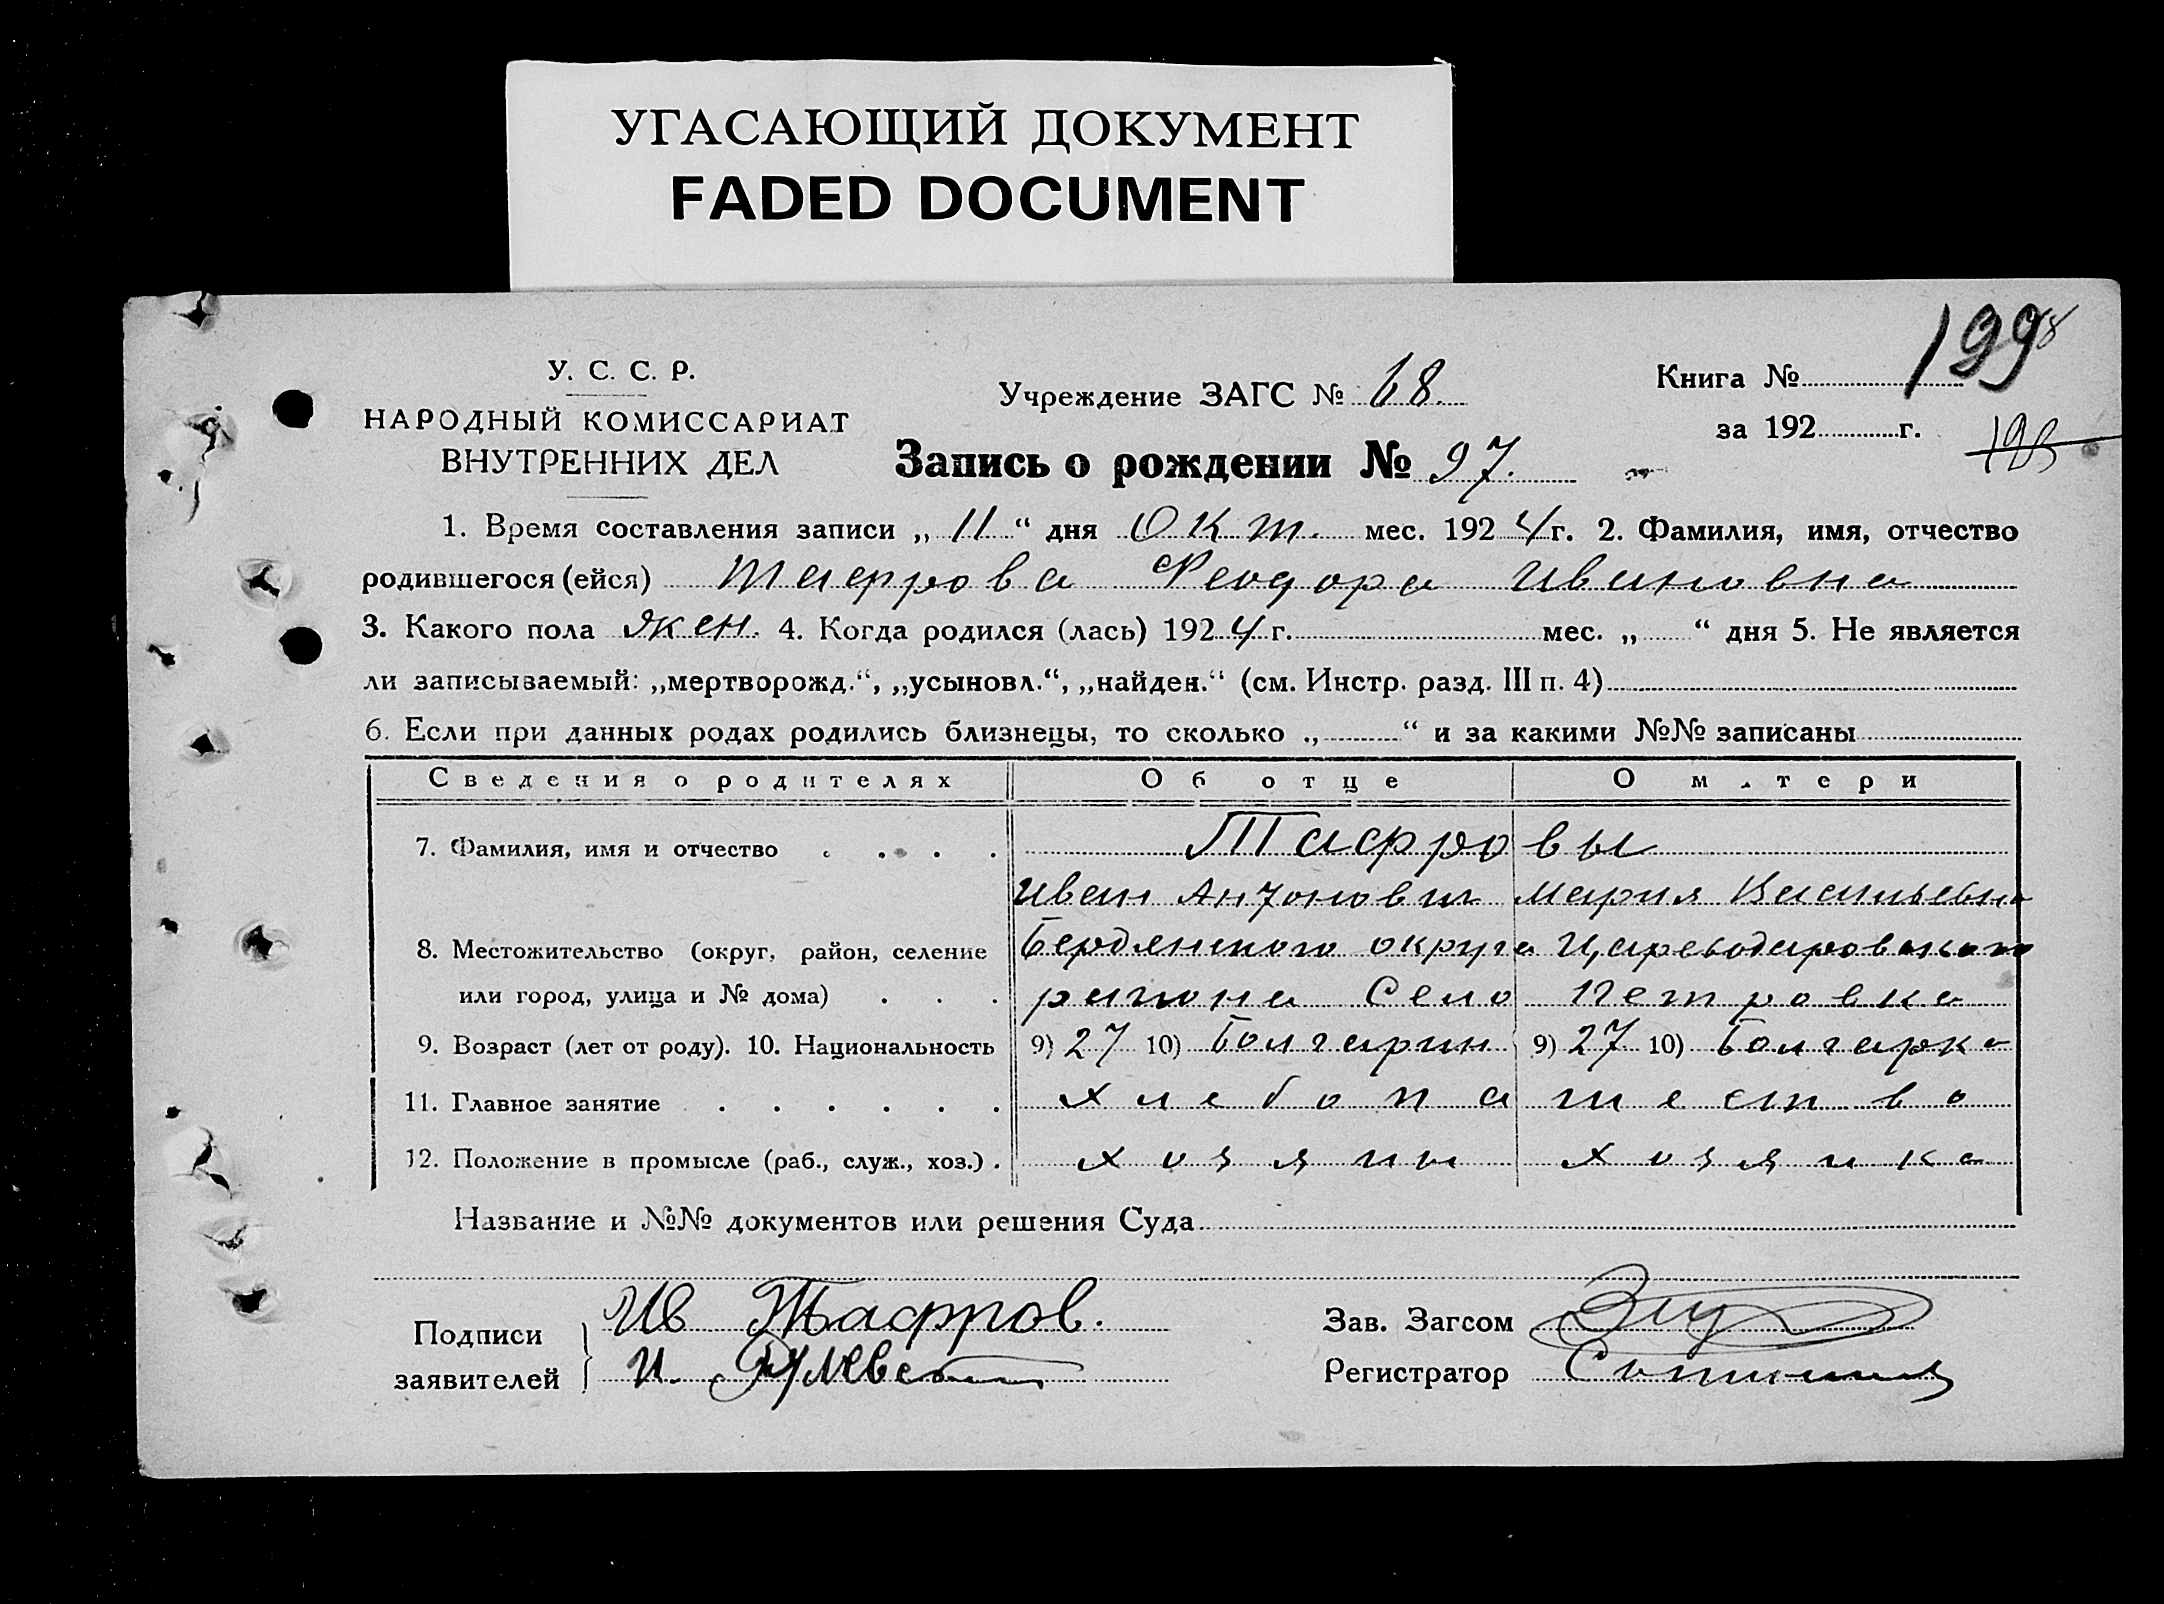 УГАСАЮЩИЙ ДОКУМЕНТ
FADED DOCUMENT
У. С. С. Р.
НАРОДНЫЙ КОМИССАРИАТ
ВНУТРЕННИХ ДЕЛ
Учреждение ЗАГС № 68.
Книга № 199
за 192 г.
Запись о рождении № 97.
1. Время составления записи „ 11 “ дня Окт. мес. 192 4 г. 2. Фамилия, имя, отчество
родившегося (ейся) Тафрова Феодора Ивановна
3. Какого пола жен. 4. Когда родился (лась) 192 4 г. мес. „ “ дня 5. Не является
ли записываемый: „мертворожд.“, „усыновл.“, „найден.“ (см. Инстр. разд. III п. 4)
6. Если при данных родах родились близнецы, то сколько „ “ и за какими №№ записаны
Сведения о родителях Об отце О м.тери
7. Фамилия, имя и отчество . . . . Тафровы
Иван Антонович Мария Васильевна
8. Местожительство (округ, район, селение Бердянского округа Цареводаровского
или город, улица и № дома) . . . района Село Петровка
9. Возраст (лет от роду). 10. Национальность 9) 27 10) Болгарин 9) 27 10) Болгарка
11. Главное занятие . . . . . . хлебопашество
12. Положение в промысле (раб., служ., хоз.) . хозяин хозяика
Название и №№ документов или решения Суда
Подписи
заявителей
Ив Тафров.
И.
Зав. Загсом
Регистратор